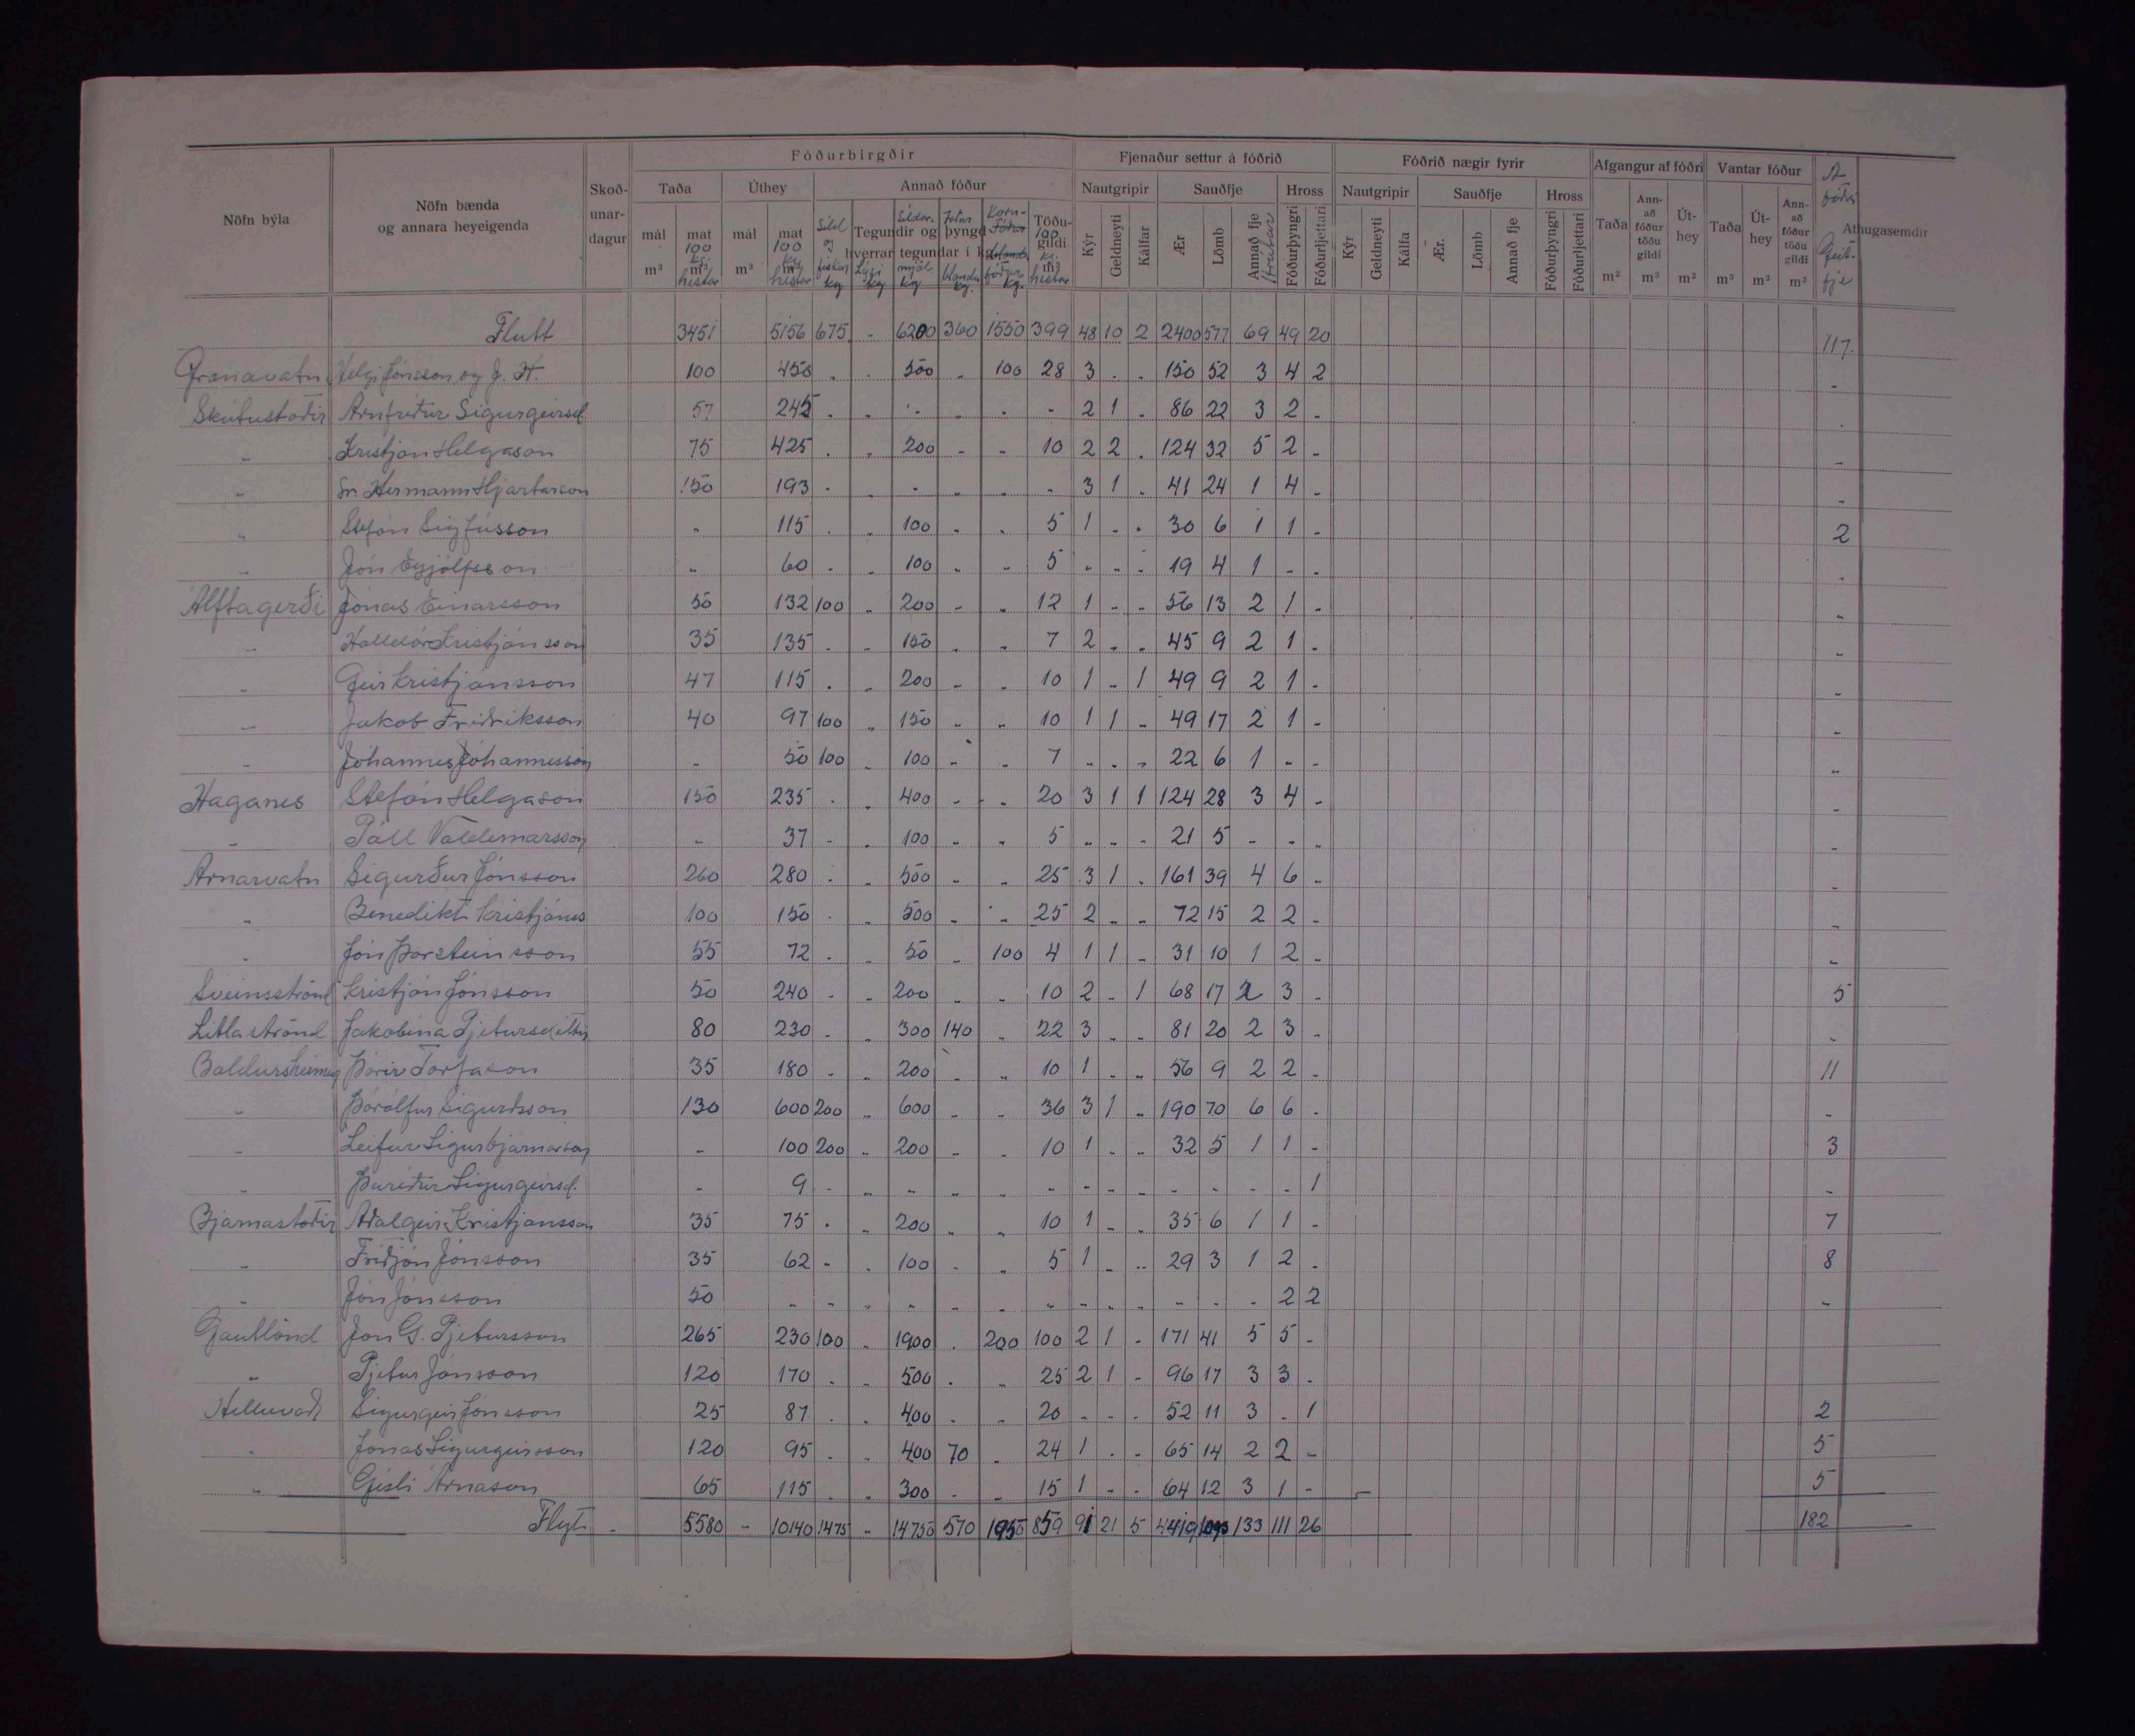 Fóðurbirgðir Fjenaður settur á fóðrið Fóðrið nægir fyrir Afgangur af fóðri Vantar fóður Á fóðri
Nöfn býla Nöfn bænda og annara heyeigenda Skoð-unar-dagur Taða Úthey Annað fóður Nautgripir Sauðfje Hross Nautgripir Sauðfje Hross Taða m³ Ann-að fóður töðu gildi m³ Út-hey m³ Taða m³ Út-hey m³ Ann-að fóður töðu gildi m³ Geit-fje Athugasemdir
mál m³ mat 100 kg. m³ hestar mál m³ mat 100 kg m³ hestar Tegundir og þyngd hverrar tegundar í kg. Síld og fiskur kg Lýsi kg Síldar-mjöl kg blanda kg. Korn-fóður kg. Töðu-gildi 100 kg. m³ hestar Kýr Geldneyti Kálfar Ær Lömb Annað fje Hrútar Fóðurþyngri Fóðurljettari Kýr Geldneyti Kálfa Ær. Lömb Annað fje Fóðurþyngri Fóðurljettari
Flutt 3451 5156 675 - 6200 360 1550 399 48 10 2 2400 577 69 49 20 117.
Grænavatn Helgi Jónsson og J. H. 100 450 . . 500 - 100 28 3 . . 150 52 3 4 2 -
Skútustaðir Arnfríður Sigurgeirsd. 57 245 . - - - . - 2 1 . 86 22 3 2 - .
" Kristján Helgason 75 425 . . 200 - - 10 2 2 . 124 32 5 2 - -
" Sr. Hermann Hjartarson 150 193 . . - - . - 3 1 . 41 24 1 4 - -
" Stefán Sigfússon " 115 . . 100 - . 5 1 . . 30 6 1 1 - 2
" Jón Eyjólfsson " 60 . . 100 - - 5 - - - 19 4 1 - . .
Álftagerði Jónas Einarsson 50 132 100 - 200 - - 12 1 - - 56 13 2 1 . -
" Halldór Kristjánsson 35 135 . - 150 . - 7 2 - . 45 9 2 1 . -
" Geir Kristjánsson 47 115 . - 200 - - 10 1 - 1 49 9 2 1 - -
" Jakob Friðriksson 40 97 100 - 150 - - 10 1 1 - 49 17 2 1 - -
" Jóhannes Jóhannesson - 50 100 - 100 - - 7 - - - 22 6 1 - - -
Haganes Stefán Helgason 150 235 . . 400 - - 20 3 1 1 124 28 3 4 - -
" Páll Valdemarsson - 37 - . 100 - - 5 - - - 21 5 - - - -
Arnarvatn Sigurður Jónsson 260 280 . - 500 - - 25 3 1 . 161 39 4 6 - -
" Benedikt Kristjáns 100 150 . - 500 - - 25 2 - - 72 15 2 2 - -
" Jón Þorsteinsson 55 72 . - 50 - 100 4 1 1 - 31 10 1 2 - -
Sveinsströnd Kristján Jónsson 50 240 - - 200 - - 10 2 - 1 68 17 2 3 - 5
Litlaströnd Jakobína Pjetursdóttir 80 230 - - 300 140 - 22 3 - - 81 20 2 3 - -
Baldursheimur Þórir Torfason 35 180 - - 200 - - 10 1 - - 56 9 2 2 - 11
" Þórólfur Sigurðsson 130 600 200 - 600 - - 36 3 1 - 190 70 6 6 . -
" Leifur Sigurbjarnarson - 100 200 - 200 - - 10 1 - - 32 5 1 1 - 3
" Þuríður Sigurgeirsd. - 9 - - - - - - - - - - - - - 1 -
Bjarnastaðir Aðalgeir Kristjánsson 35 75 . - 200 - - 10 1 - - 35 6 1 1 - 7
" Friðjón Jónsson 35 62 - . 100 - - 5 1 - - 29 3 1 2 . 8
" Jón Jónsson 50 - - - - - - - - - - - . . 2 2 -
Gautlönd Jón G. Pjetursson 265 230 100 - 1900 . 200 100 2 1 - 171 41 5 5 -
" Pjetur Jónsson 120 170 . - 500 . - 25 2 1 - 96 17 3 3 .
Helluvað Sigurgeir Jónsson 25 87 . . 400 . - 20 - . - 52 11 3 . 1 2
" Jónas Sigurgeirsson 120 95 . - 400 70 . 24 1 . - 65 14 2 2 - 5
" Gísli Árnason 65 115 . - 300 - - 15 1 - - 64 12 3 1 - 5
Flyt. - 5580 - 10140 1475 - 14750 570 1950 859 91 21 5 4419 1093 133 111 26 182